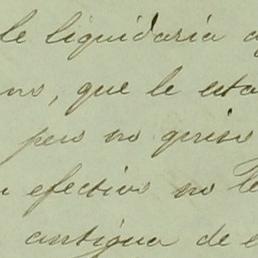 le liquidaria a
no, que le esta
pero no quiso
efectivo no le
antigua de e